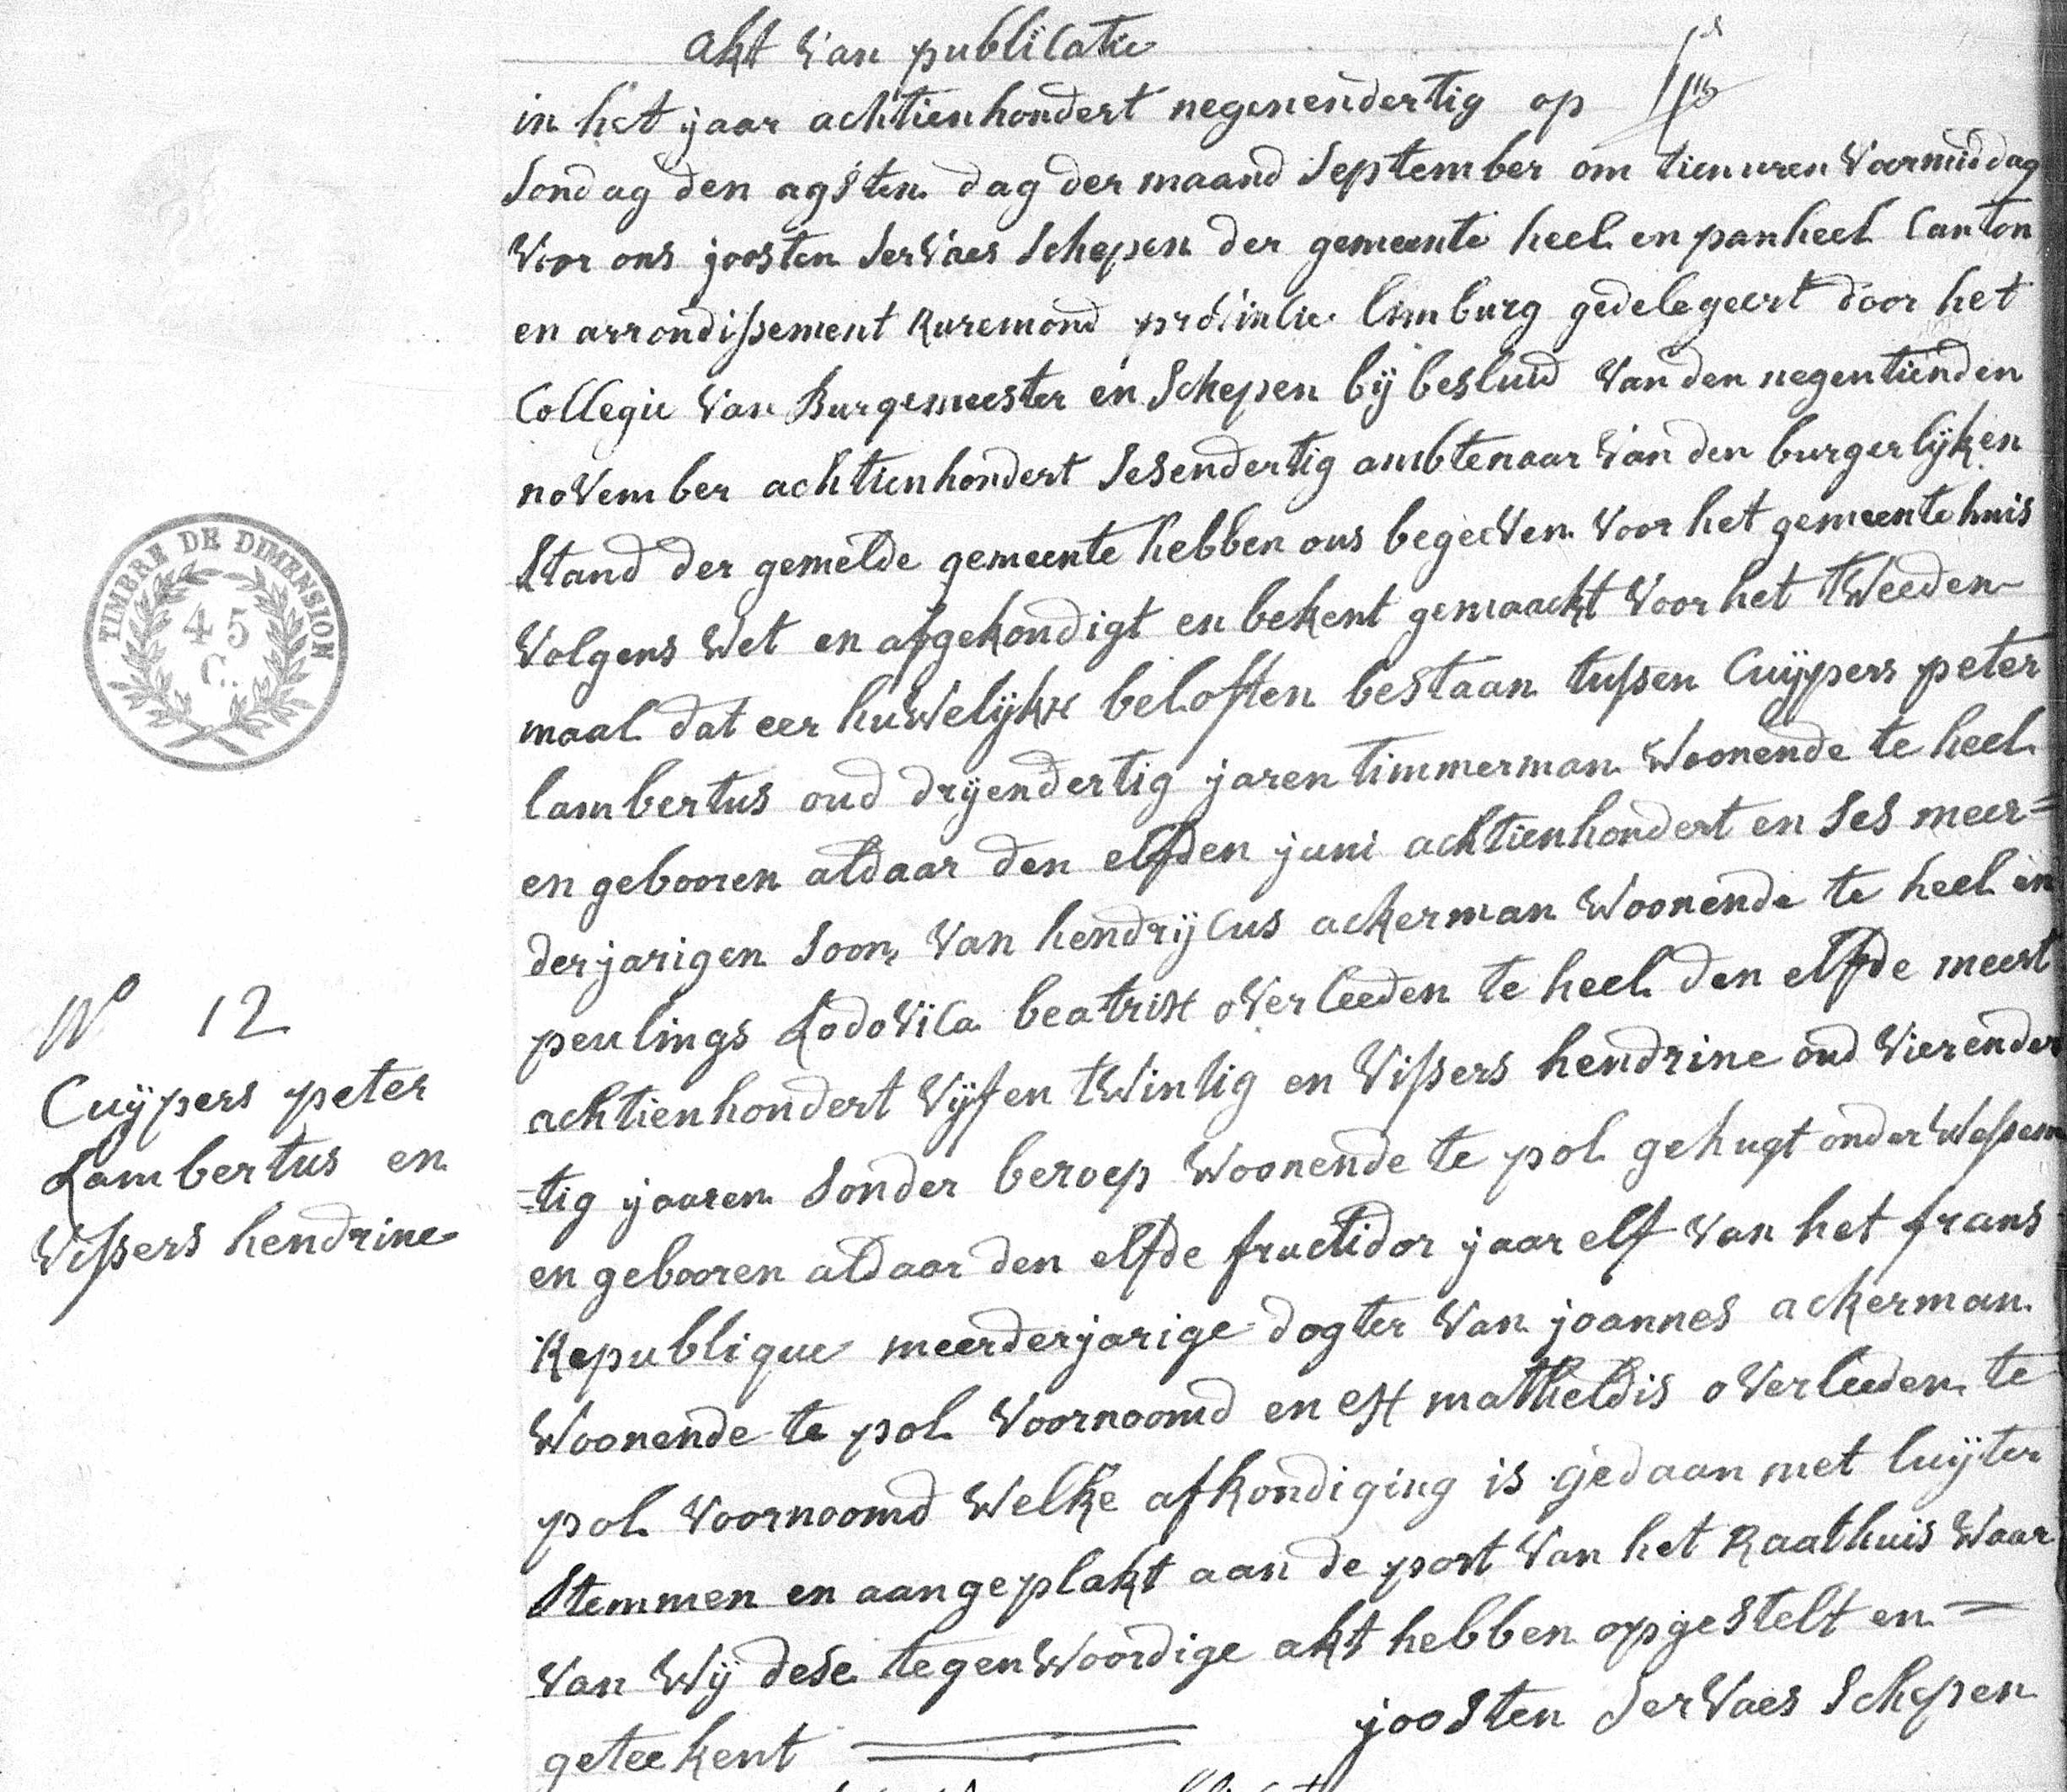 akt van publicatie
in het jaar achtienhondert negenendertig op
sondag den agsten dag der maand september om tien uren voormiddag
voor ons joosten servaes schepen der gemeente heel en panheel canton
en arrondissement Ruremond provincie limburg gedelegeert door het
Collegie van Burgemeester en schepen bij besluid van den negentienden
november achtienhondert sesendertig ambtenaar van den burgerlijken
stand der gemelde gemeente hebben ons begeeven voor het gemeentehuis
volgens wet en afgekondigt en bekent gemaackt voor het tweeden
maal dat eer huwelijkx beloften bestaan tussen Cuijpers peter
lambertus oud drijendertig jaren timmerman woonende te heel
en gebooren aldaar den elfden juni achtienhondert en ses meer=
derjarigen soon van hendrijcus ackerman woonende te heel en
peulings Lodovica beatrix overleeden te heel den elfde meert
achtienhondert vijfentwintig en vissers hendrine oud vierender
=tig jaaren sonder beroep woonende te pol gehugt onder wessem
en gebooren aldaar den elfde fructidor jaar elf van het frans
Republique meerderjarige dogter van joannes ackerman
woonende te pol voornoomd en ex matheldis overleeden te
pol voornoomd welke afkondiging is gedaan met luijter
stemmen en aangeplakt aan de port van het Raathuis waar
van wij dese tegenwoordige akt hebben opgestelt en
geteekent joosten servaes schepen
TIMBRE DE DIMENSION
45
C.
No 12
Cuijpers peter
Lambertus en
vissers hendrine